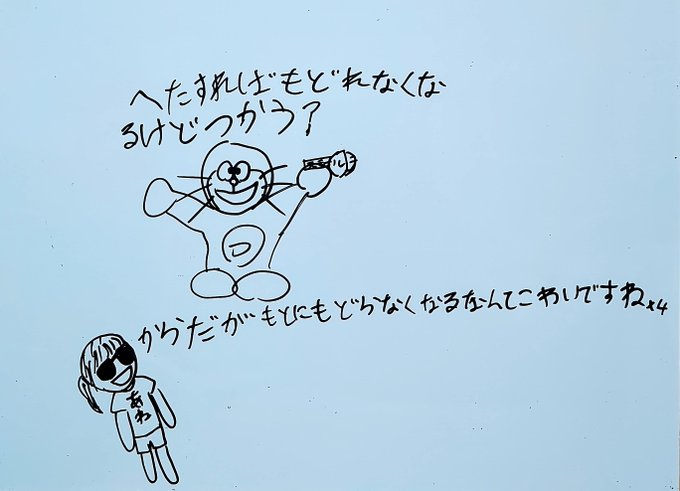 へたすればもどれなくな
るけどつかう?
からだがもとにもどらなくなるなんてこわいですね×4
あわ